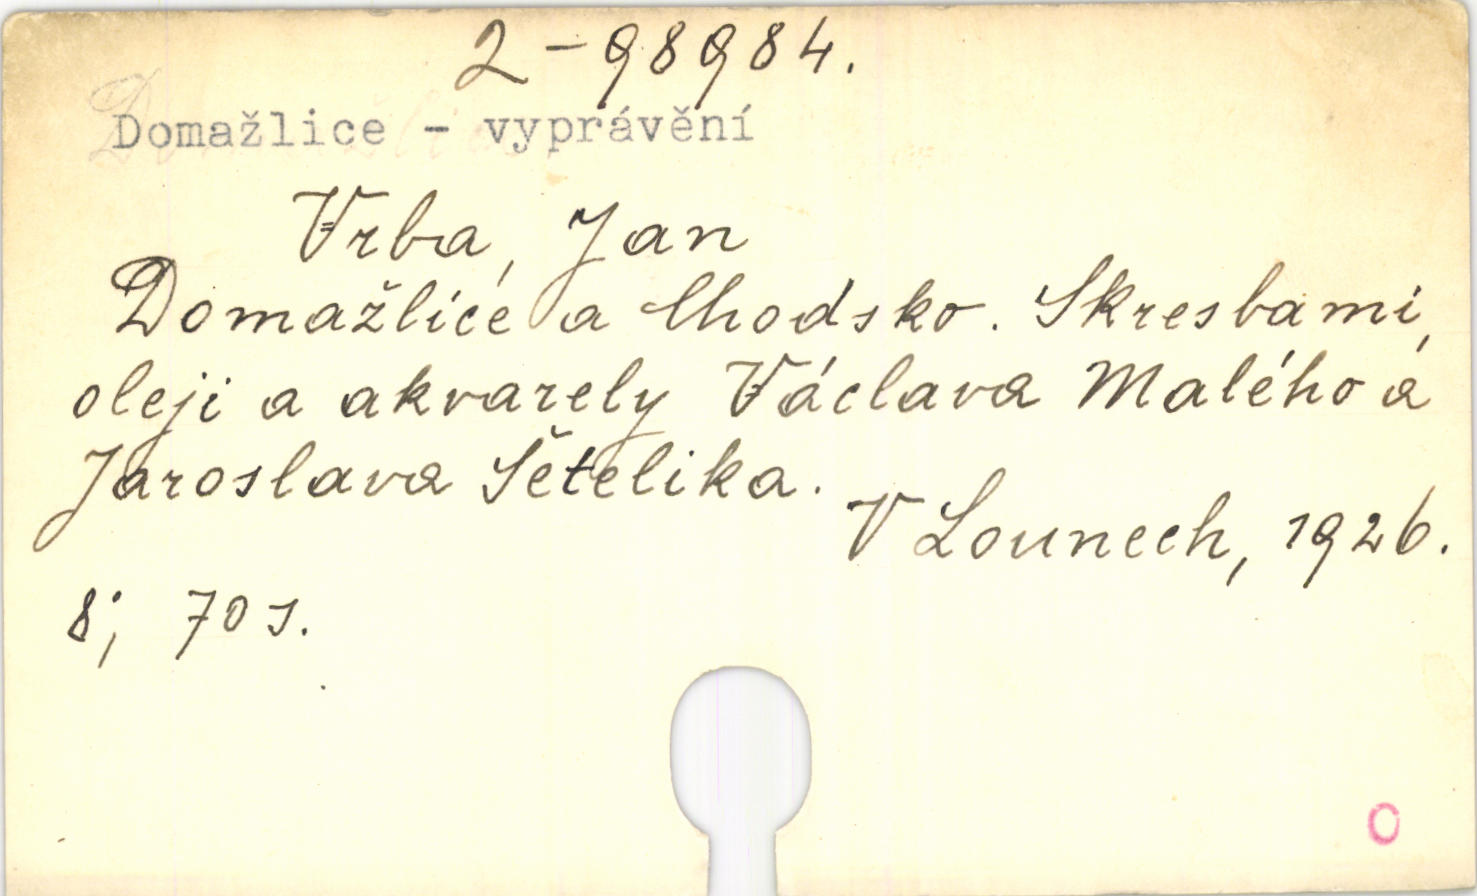 2-98984.
Domažlice - vyprávění
Vrba, Jan
Domažlice a Chodsko. S kresbami,
oleji a akvarely Václava Malého a
Jaroslava Šetelika.
V Lounech, 1926.
8°; 70 s.
O